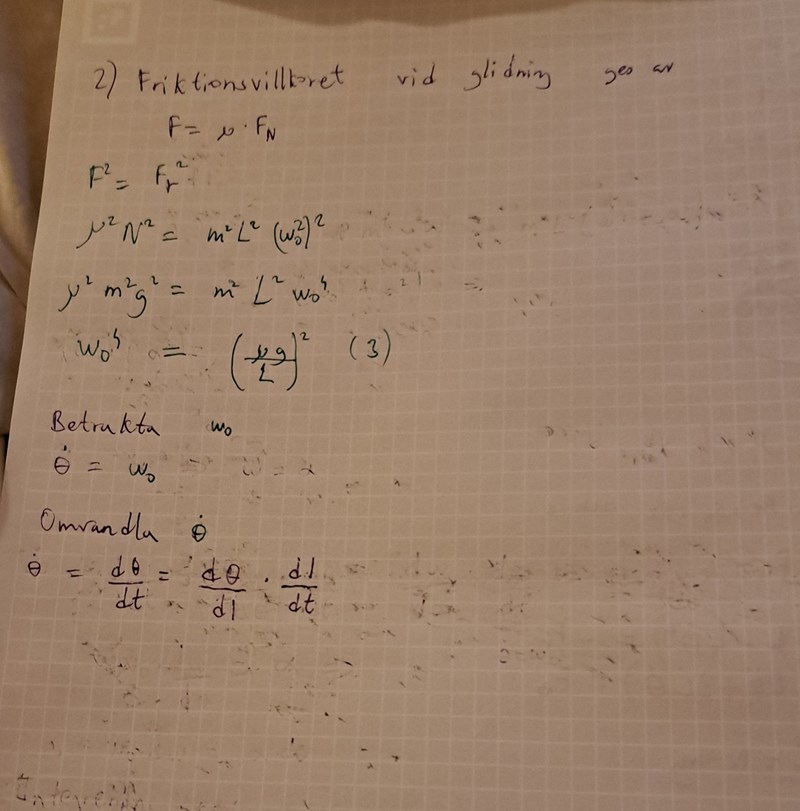 2) Friktionsvillkoret vid glidning ges av
F = μ · F_N
F² = F_r²
μ² N² = m² L² (ω₀²)²
μ² m² g² = m² L² ω₀⁴
ω₀⁴ = (μg/L)² (3)
Betrakta ω₀
θ̇ = ω₀
Omvandla θ̇
θ̇ = dθ/dt = dθ/dl · dl/dt